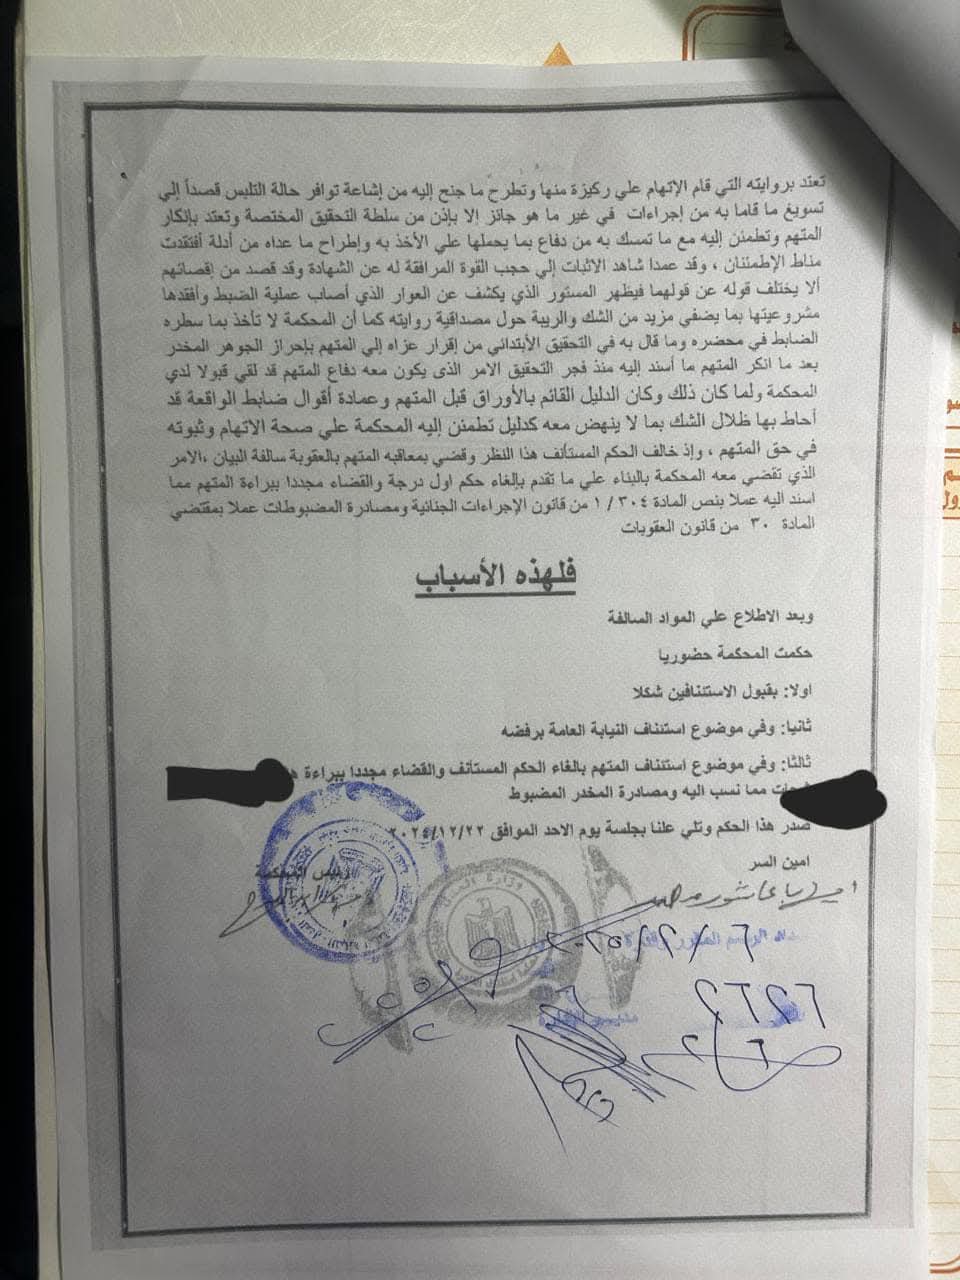 تعتد بروايته التي قام الإتهام علي ركيزة منها وتطرح ما جنح إليه من إشاعة توافر حالة التلبس قصداً إلي
تسويغ ما قاما به من إجراءات في غير ما هو جائز إلا بإذن من سلطة التحقيق المختصة وتعتد بإنكار
المتهم وتطمئن إليه مع ما تمسك به من دفاع بما يحملها علي الأخذ به وإطراح ما عداه من أدلة أفتقدت
مناط الإطمئنان ، وقد عمدا شاهد الاثبات إلي حجب القوة المرافقة له عن الشهادة وقد قصد من إقصائهم
ألا يختلف قوله عن قولهما فيظهر المستور الذي يكشف عن العوار الذي أصاب عملية الضبط وأفقدها
مشروعيتها بما يضفي مزيد من الشك والريبة حول مصداقية روايته كما أن المحكمة لا تأخذ بما سطره
الضابط في محضره وما قال به في التحقيق الأبتدائي من إقرار عزاه إلي المتهم بإحراز الجوهر المخدر
بعد ما انكر المتهم ما أسند إليه منذ فجر التحقيق الامر الذى يكون معه دفاع المتهم قد لقي قبولا لدي
المحكمة ولما كان ذلك وكان الدليل القائم بالأوراق قبل المتهم وعمادة أقوال ضابط الواقعة قد
أحاط بها ظلال الشك بما لا ينهض معه كدليل تطمئن إليه المحكمة علي صحة الاتهام وثبوته
في حق المتهم ، وإذ خالف الحكم المستأنف هذا النظر وقضي بمعاقبه المتهم بالعقوبة سالفة البيان ،الامر
الذي تقضي معه المحكمة بالبناء علي ما تقدم بإلغاء حكم اول درجة والقضاء مجددا ببراءة المتهم مما
اسند اليه عملا بنص المادة ٣٠٤ / ١ من قانون الإجراءات الجنائية ومصادرة المضبوطات عملا بمقتضي
المادة ٣٠ من قانون العقوبات
فلهذه الأسباب
وبعد الاطلاع علي المواد السالفة
حكمت المحكمة حضوريا
اولا: بقبول الاستئنافين شكلا
ثانيا: وفي موضوع استئناف النيابة العامة برفضه
ثالثا: وفي موضوع استئناف المتهم بالغاء الحكم المستأنف والقضاء مجددا ببراءة
مما نسب اليه ومصادرة المخدر المضبوط
صدر هذا الحكم وتلي علنا بجلسة يوم الاحد الموافق ٢٠٢٤/١٢/٢٢
امين السر
رئيس المحكمة
وزارة العدل